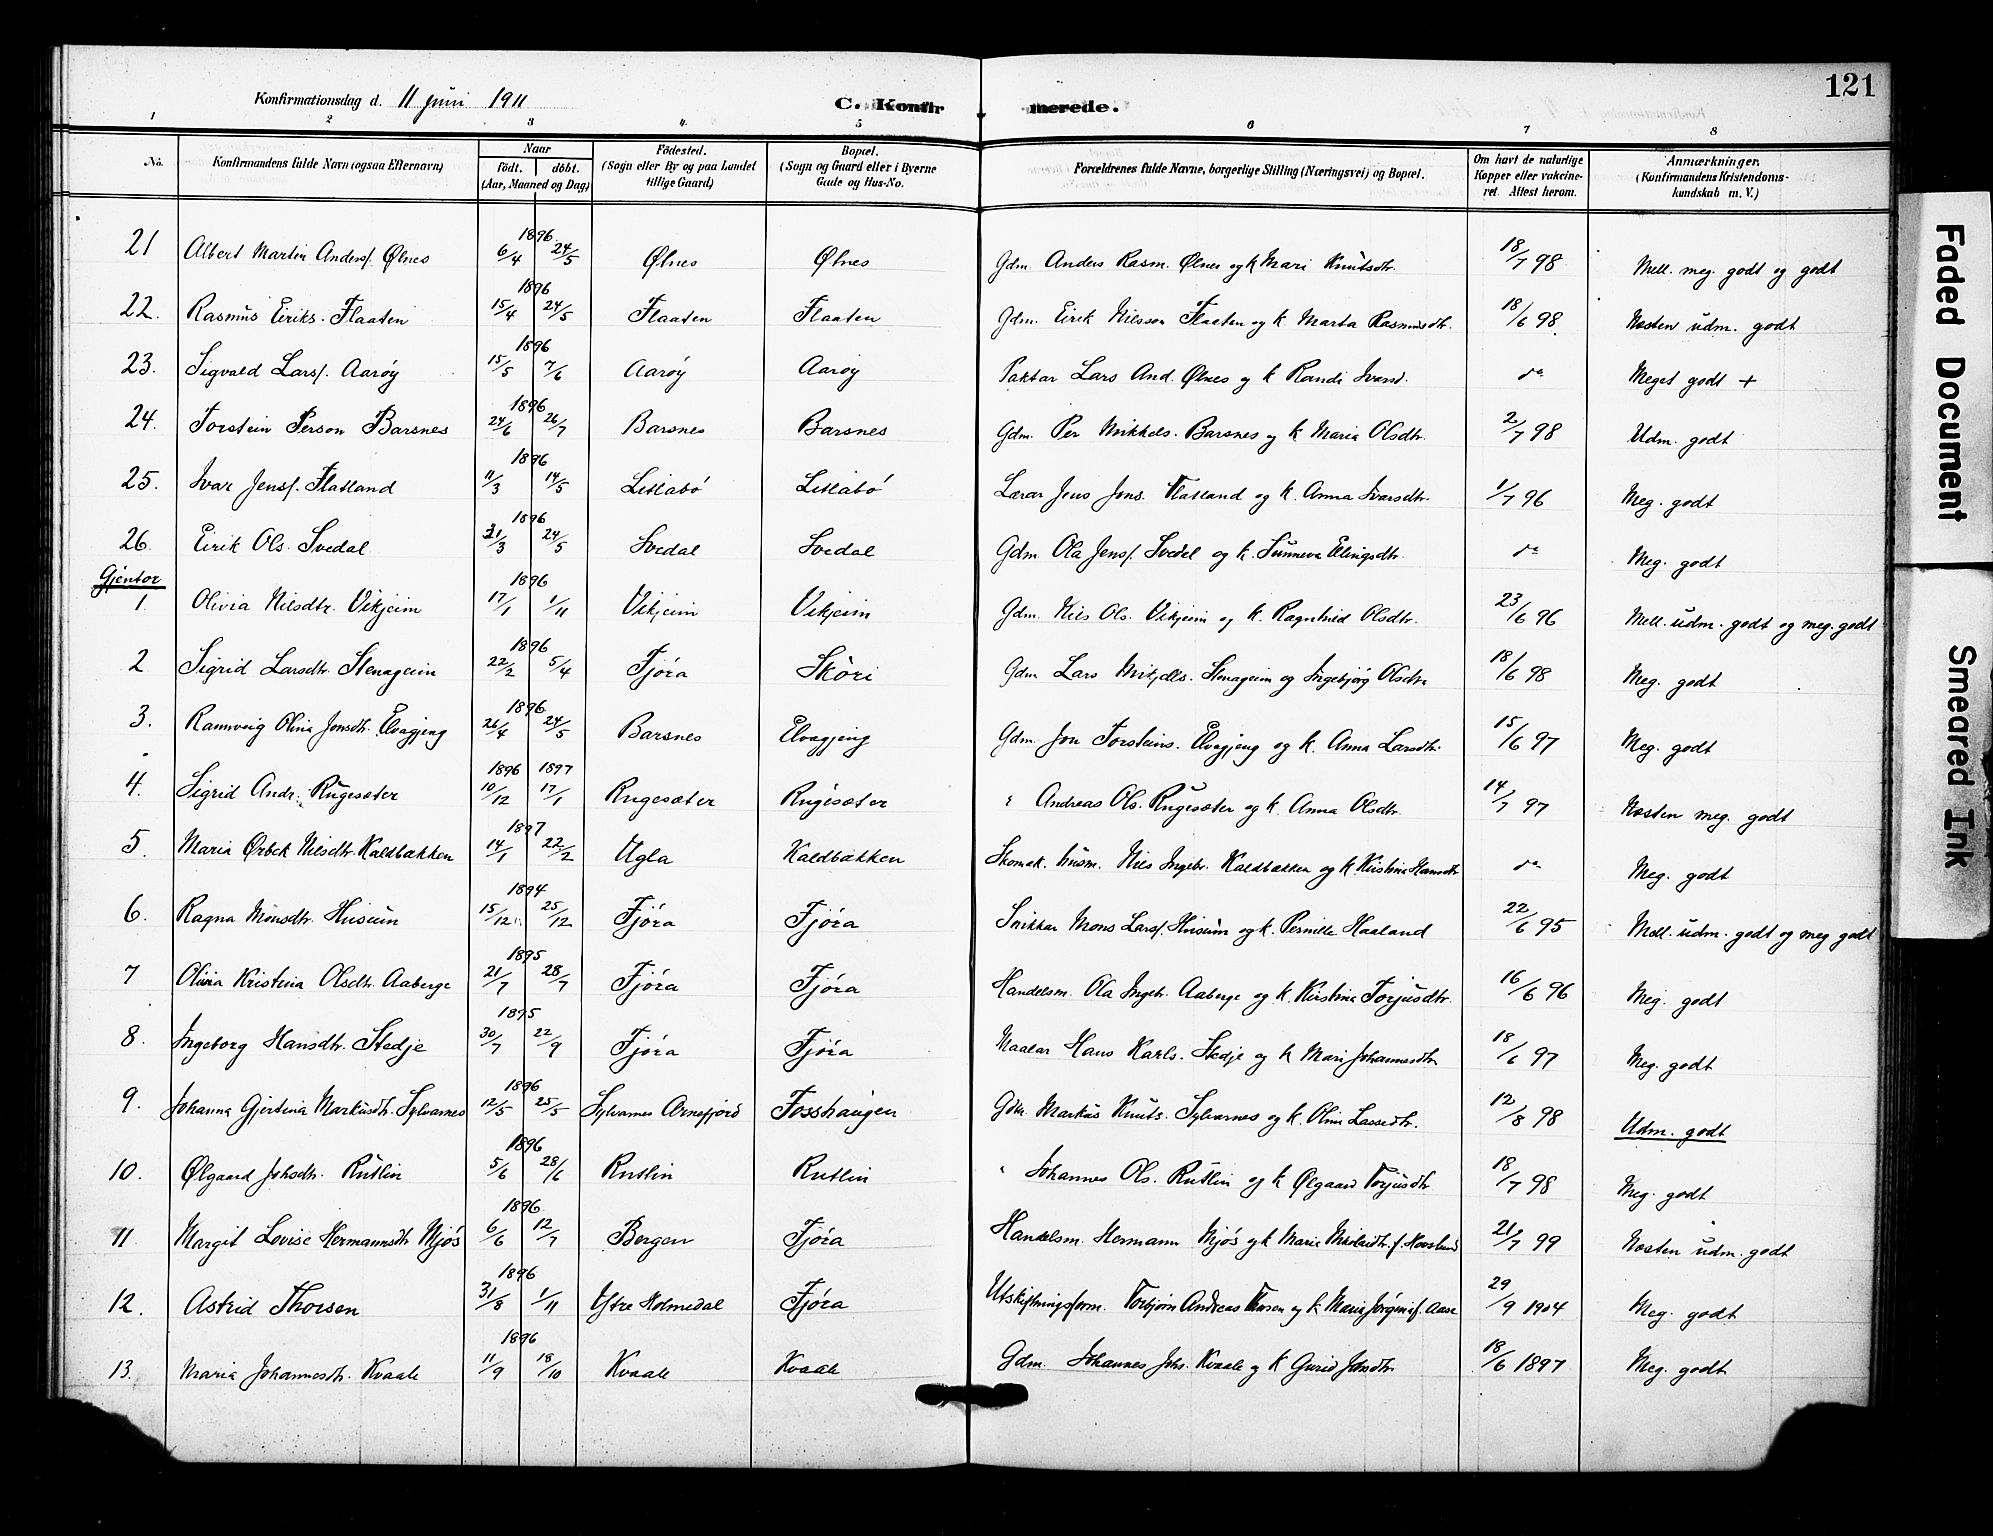 121
Konfirmationsdag d. 11 juni 1911 C. Konfirmerede.
1 2 3 4. 5 6 7 8
No. Konfirmandens fulde Navn (ogsaa Efternavn) Naar födt. döbt. (Aar, Maaned og Dag) Födested. (Sogn eller By og paa Landet tillige Gaard) Bopæl. (Sogn og Gaard eller i Byerne Gade og Hus-No. Forældrenes fulde Navne, borgerlige Stilling (Næringsvei) og Bopæl. Om havt de naturlige Kopper eller vakcineret. Attest herom. Anmærkninger. (Konfirmandens Kristendomskundskab m. V.)
21 Albert Martin Anders. Ølnes 1896 6/4 24/5 Ølnes Ølnes Gdm. Anders Rasm. Ølnes og k Mari Knutsdtr. 18/7 98 Mell. meg. godt og godt
22. Rasmus Eiriks. Flaaten 1896 15/4 24/5 Flaaten Flaaten Gdm. Eirik Nilsson Flaaten og k Marta Rasmusdtr. 18/6 98. Næsten udm. godt
23. Sigvald Lars. Aarøy 1896 15/5 7/6 Aarøy Aarøy Paktar Lars And. Ølnes og k Randi Ivarsd. do Meget godt +
24. Torstein Person Barsnes 1896 24/6 26/7 Barsnes Barsnes Gdm. Per Mikkels. Barsnes og k Maria Olsdtr. 2/7 98 Udm. godt
25. Ivar Jens. Flatland 1896 11/3 14/5 Litlabö Litlabö Lærar Jens Jons. Flatland og k. Anna Ivarsdtr. 1/7 96 Meg. godt
26. Eirik Ols. Svedal 1896 31/3 24/5 Svedal Svedal Gdm. Ola Jens. Svedal og k. Sunneva Ellingsdtr. do Meg. godt
Gjentor
1. Olivia Nilsdtr. Vikjeim 1896 17/1 1/11 Vikjeim Vikjeim Gdm. Nils Ols. Vikjeim og k. Ragnhild Olsdtr. 23/6 96 Mell. udm. godt og meg. godt
2 Sigrid Larsdtr. Stenageim 1896 22/2 5/4 Fjöra Sköri Gdm Lars Mikjells. Stenageim og Ingebjørg Olsdtr 18/6 98 Meg. godt
3. Rannveig Olina Jonsdtr. Elvagjeng 1896 26/4 24/5 Barsnes Elvagjeng Gdm. Jon Torsteins. Elvagjeng og k. Anna Larsdtr. 15/6 97 Meg. godt
4. Sigrid Andr. Rugesæter 1896 1897 10/12 17/1 Rugesæter Rugesæter " Andreas Ols. Rugesæter og k. Anna Olsdtr. 14/7 97 Næsten meg. godt
5. Maria Ørbek Nilsdtr. Kaldbakken 1897 14/1 22/2 Ugla Kaldbakken Skomak. husm. Nils Ingebr. Kaldbakken og k Kirstina Hansdtr do Meg. godt
6. Ragna Monsdtr. Husum 1894 15/12 25/12 Fjöra Fjöra Snikkar Mons Lars. Husum og k. Pernille Haaland 22/6 95 Mell. udm. godt og meg godt
7 Olivia Kristina Olsdtr. Aaberge 1895 21/7 28/7 Fjöra Fjöra Handelsm. Ola Ingebr. Aaberge og k. Kirstina Torjusdtr. 16/6 96 Meg. godt
8. Ingeborg Hansdtr. Stedje 1895 30/7 22/9 Fjöra Fjöra Maalar Hans Karls. Stedje og k Mari Johannesdtr 18/6 97 Meg. godt
9. Johanna Gjertina Markusdtr. Sylvarnes 1896 12/5 25/5 Sylvarnes Arnefjord Fosshaugen Gdm. Markus Knuts. Sylvarnes og k. Olina Lassedtr. 12/8 98 Udm. godt
10. Ølgaard Johsdtr. Rutlin 1896 5/6 28/6 Rutlin Rutlin " Johannes Ols. Rutlin og k Ølgaard Torjusdtr 18/7 98 Meg. godt
11 Margit Lovise Hermannsdtr Mjøs 1896 6/6 12/7 Bergen Fjöra Handelsm. Hermann Mjøs og k Marie Nikolaidtr. f. 21/7 99 Næsten udm. godt
12. Astrid Thorsen 1896 31/8 1/11 Ytre Holmedal Fjöra Utskiftningsform. Torbjørn Andreas Thorsen og k Maria f. Aase 29/9 1904 Meg. godt
13. Maria Johannesdtr. Kvaale 1896 11/9 18/10 Kvaale Kvaale Gdm. Johannes Johs. Kvaale og k Gurid Jonsdtr. 18/6 1897 Meg. godt
Faded Document
Smeared Ink